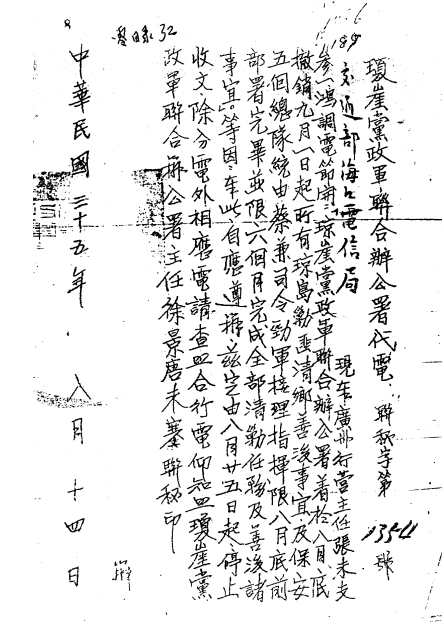 瓊崖黨政軍聯合辦公署代電 聯秘字第1354號
189
交通部海口電信局
現奉廣州行營主任張未支
參一鴻調電節開瓊崖黨政軍聯合辦公署着於八月底
撤銷九月一日起所有瓊島勦匪清鄉善後事宜及保安
五個總隊統由蔡兼司令勁軍核理指揮限八月底前
部署完畢並限六個月完成全部清勦任務及善後諸
事宜等因奉此自應遵辦茲定由八月廿五日起停止
收文除分電外相應電請查照合行電仰知照瓊崖黨
政軍聯合辦公署主任徐景唐未寒聯秘印
32
中華民國三十五年八月十四日